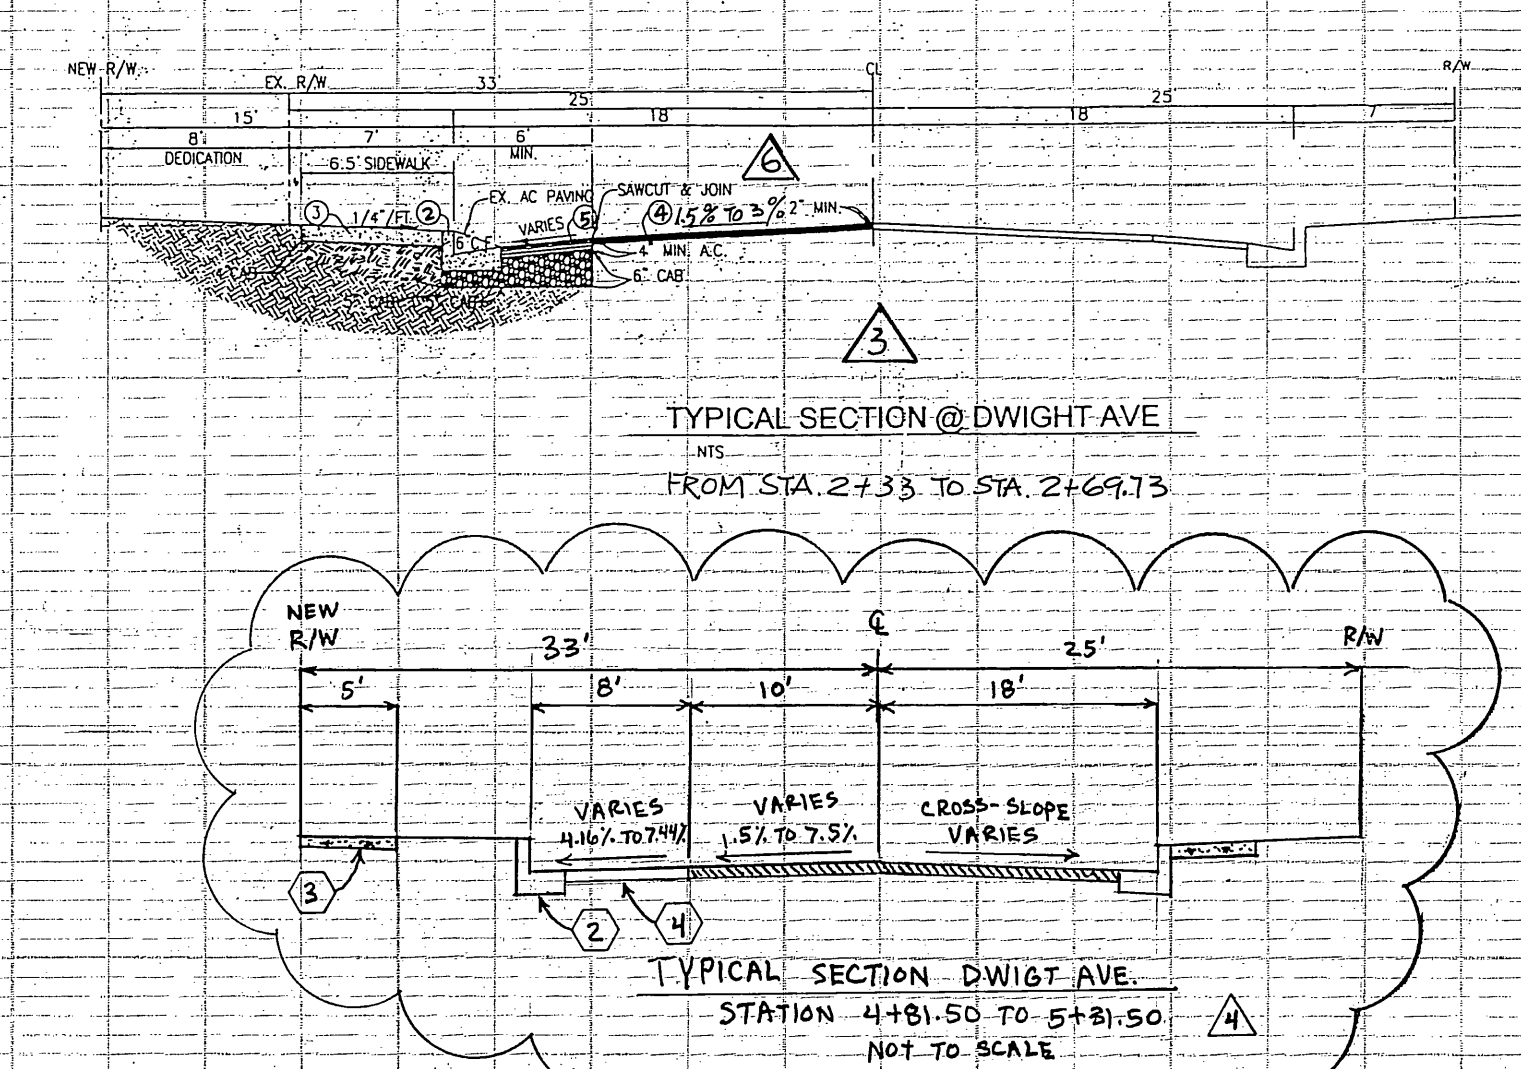 NEW R/W
EX. R/W
33'
CL
R/W
25'
25'
15'
18'
18'
7
8'
7'
6'
DEDICATION
MIN.
6.5' SIDEWALK
6
EX. AC PAVING
SAWCUT & JOIN
3
1/4"/FT.
2
VARIES
5
4
1.5% TO 3%
2" MIN.
6" C.F.
4" MIN. A.C.
6" CAB
3
TYPICAL SECTION @ DWIGHT AVE
NTS
FROM STA. 2+33 TO STA. 2+69.73
NEW
R/W
33'
℄
25'
R/W
5'
8'
10'
18'
VARIES
4.16% TO 7.44%
VARIES
1.5% TO 7.5%
CROSS-SLOPE
VARIES
3
2
4
TYPICAL SECTION DWIGT AVE.
STATION 4+81.50 TO 5+31.50
4
NOT TO SCALE